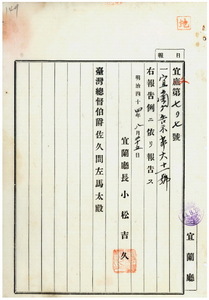 149
報
日
宜廳第七〇七號
一宜蘭廳告示第六十一號
右報告例ニ依リ報告ス
明治四十四年八月十五日
宜蘭廳長 小松吉久
臺灣總督伯爵佐久間左馬太殿
宜蘭廳